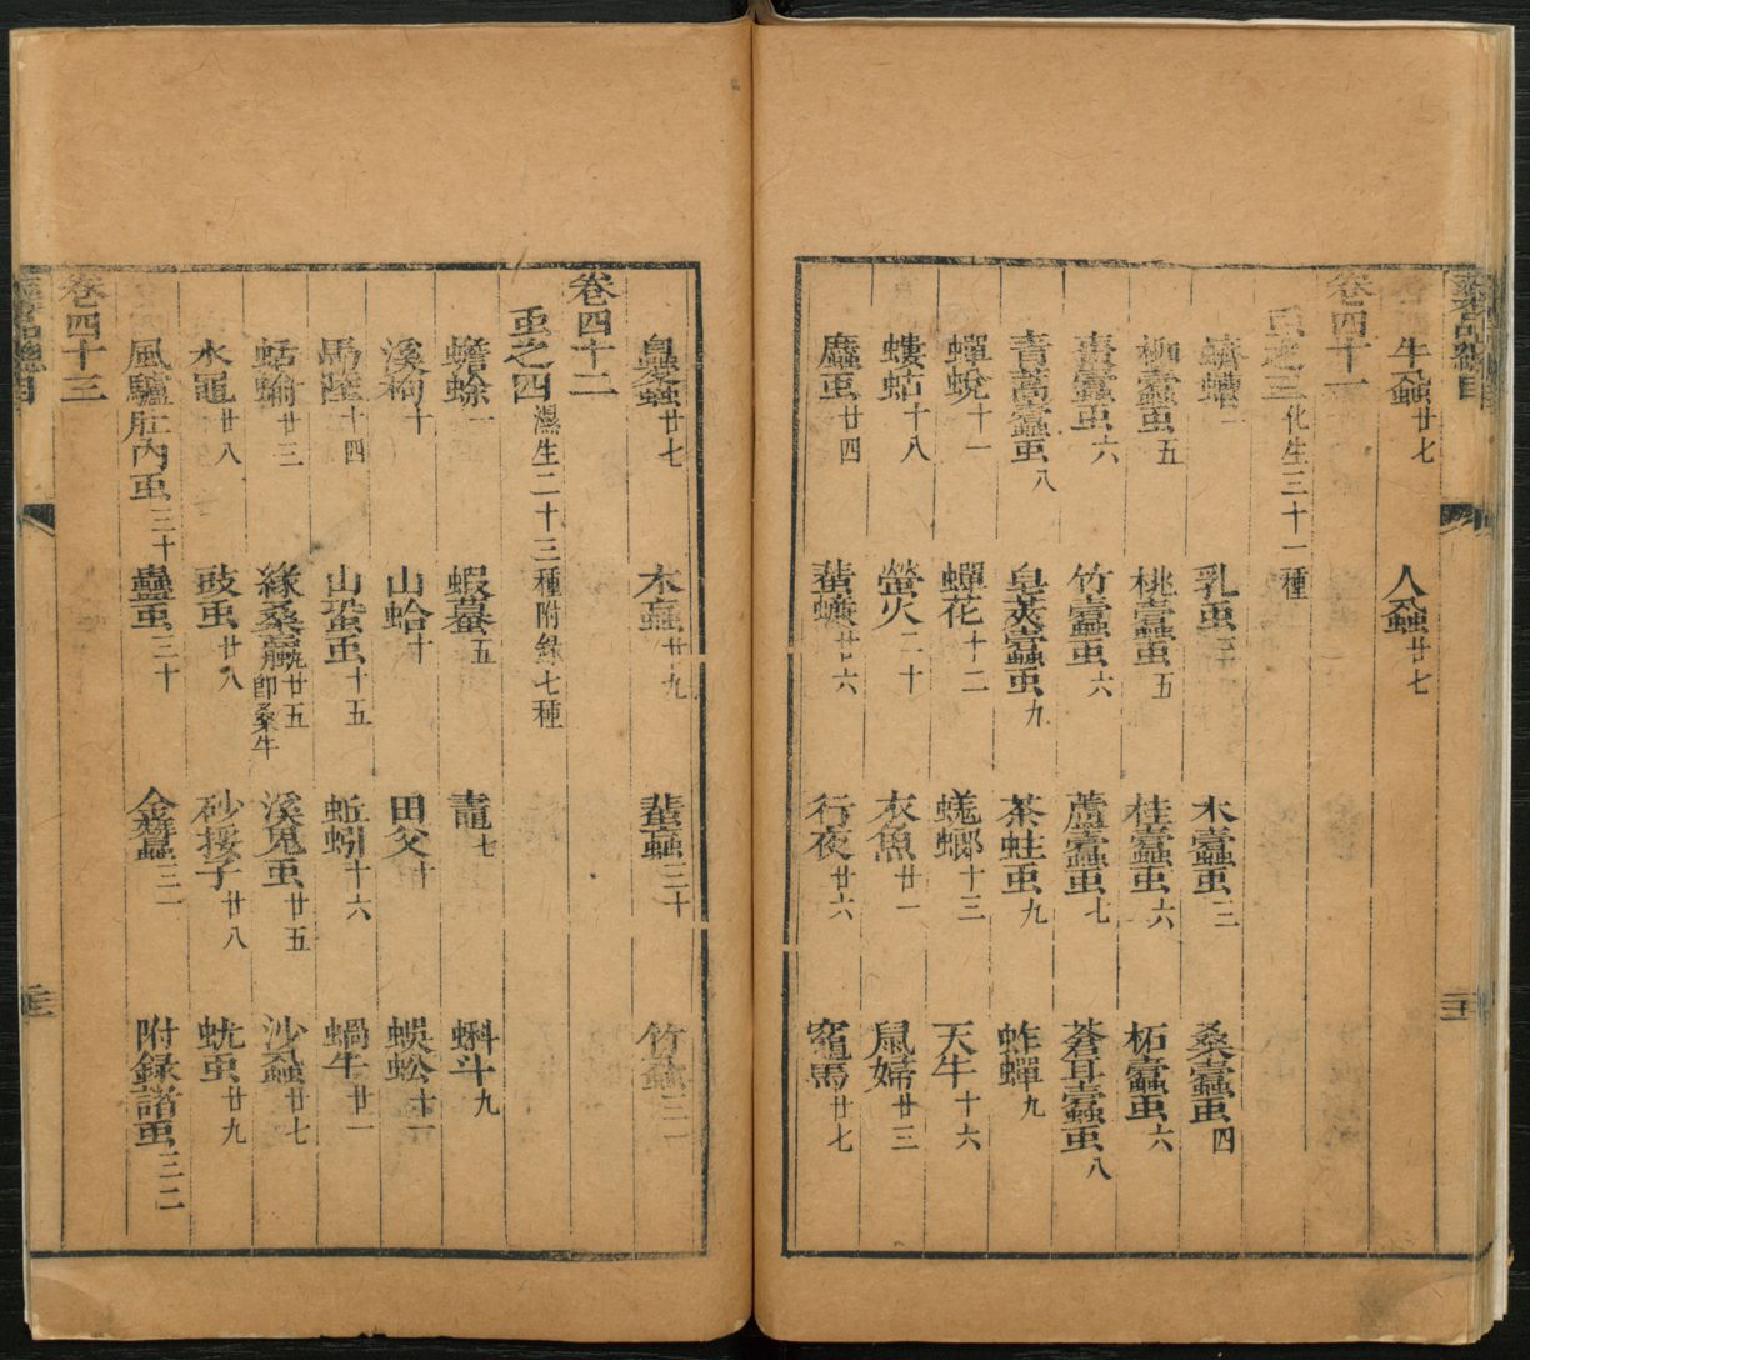 牛蝨廿七 人蝨廿七
卷四十一
虫之三化生三十一種
蠐螬一 乳虫 木蠹虫三 桑蠹虫四
柳蠹虫五 桃蠹虫五 桂蠹虫六 柘蠹虫六
棗蠹虫六 竹蠹虫六 蘆蠹虫七 蒼耳蠹虫八
青蒿蠹虫八 皂莢蠹虫九 茶蛀虫九 蚱蟬九
蟬蛻十一 蟬花十二 蜣螂十三 天牛十六
螻蛄十八 螢火二十 衣魚廿一 鼠婦廿三
䗪虫廿四 蜚蠊廿六 行夜廿六 竈馬廿七
䘀螽廿七 木蝱廿九 蜚蝱三十 竹蝨三一
卷四十二
虫之四濕生二十三種附錄七種
蟾蜍一 蝦蟇五 鼃七 蝌斗九
溪狗十 山蛤十 田父十 蜈蚣十一
馬陸十四 山蛩虫十五 蚯蚓十六 蝸牛廿一
蛞蝓廿三 緣桑蠃廿五即桑牛 溪鬼虫廿五 沙蝨廿七
水黽廿八 豉虫廿八 砂挼子廿八 蚘虫廿九
風驢肚內虫三十 蠱虫三十 金蠶三一 附録諸虫三二
卷四十三